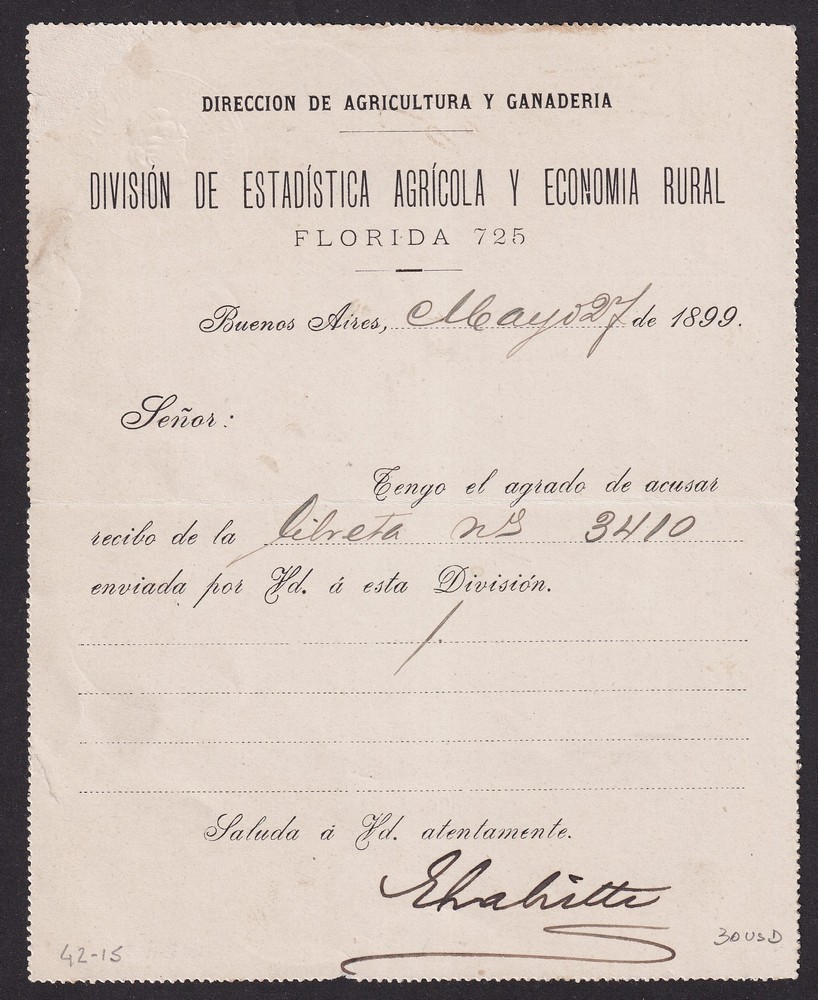 DIRECCION DE AGRICULTURA Y GANADERIA
DIVISIÓN DE ESTADÍSTICA AGRÍCOLA Y ECONOMIA RURAL
FLORIDA 725
Buenos Aires, Mayo 27 de 1899.
Señor:
Tengo el agrado de acusar
recibo de la libreta nº 3410
enviada por Vd. á esta División.
Saluda á Vd. atentamente.
42-15
30 USD